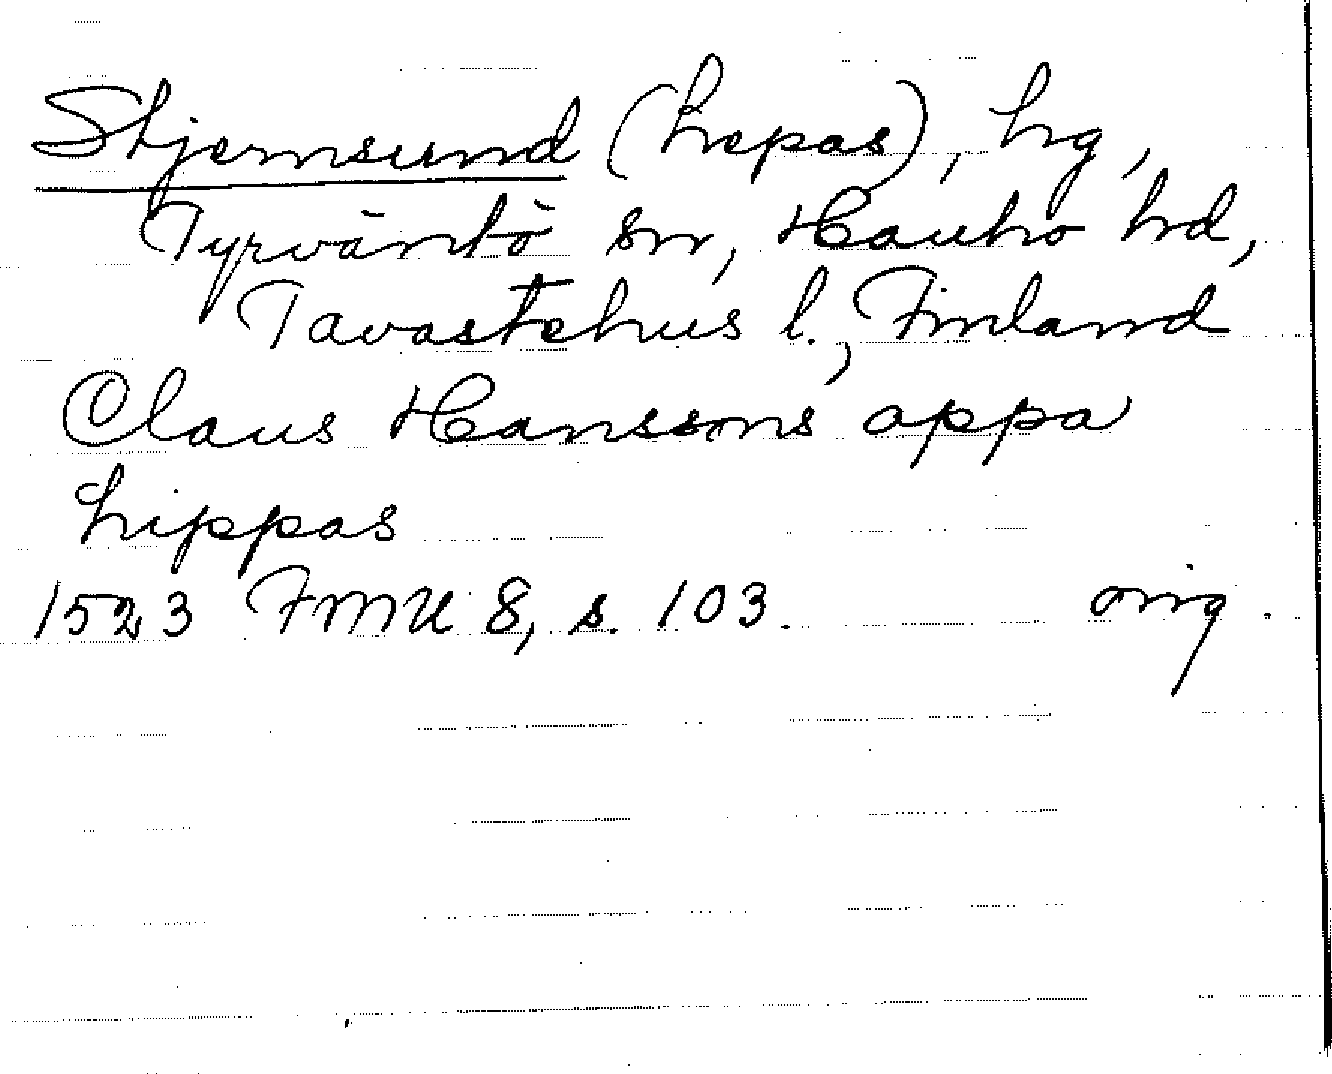 Stjernsund (Lepas), hg,
Tyrväntö sn, Hauho hd,
Tavastehus l., Finland
Claus Hanssons appa
Lippas
1523 FMU 8, s. 103. orig.